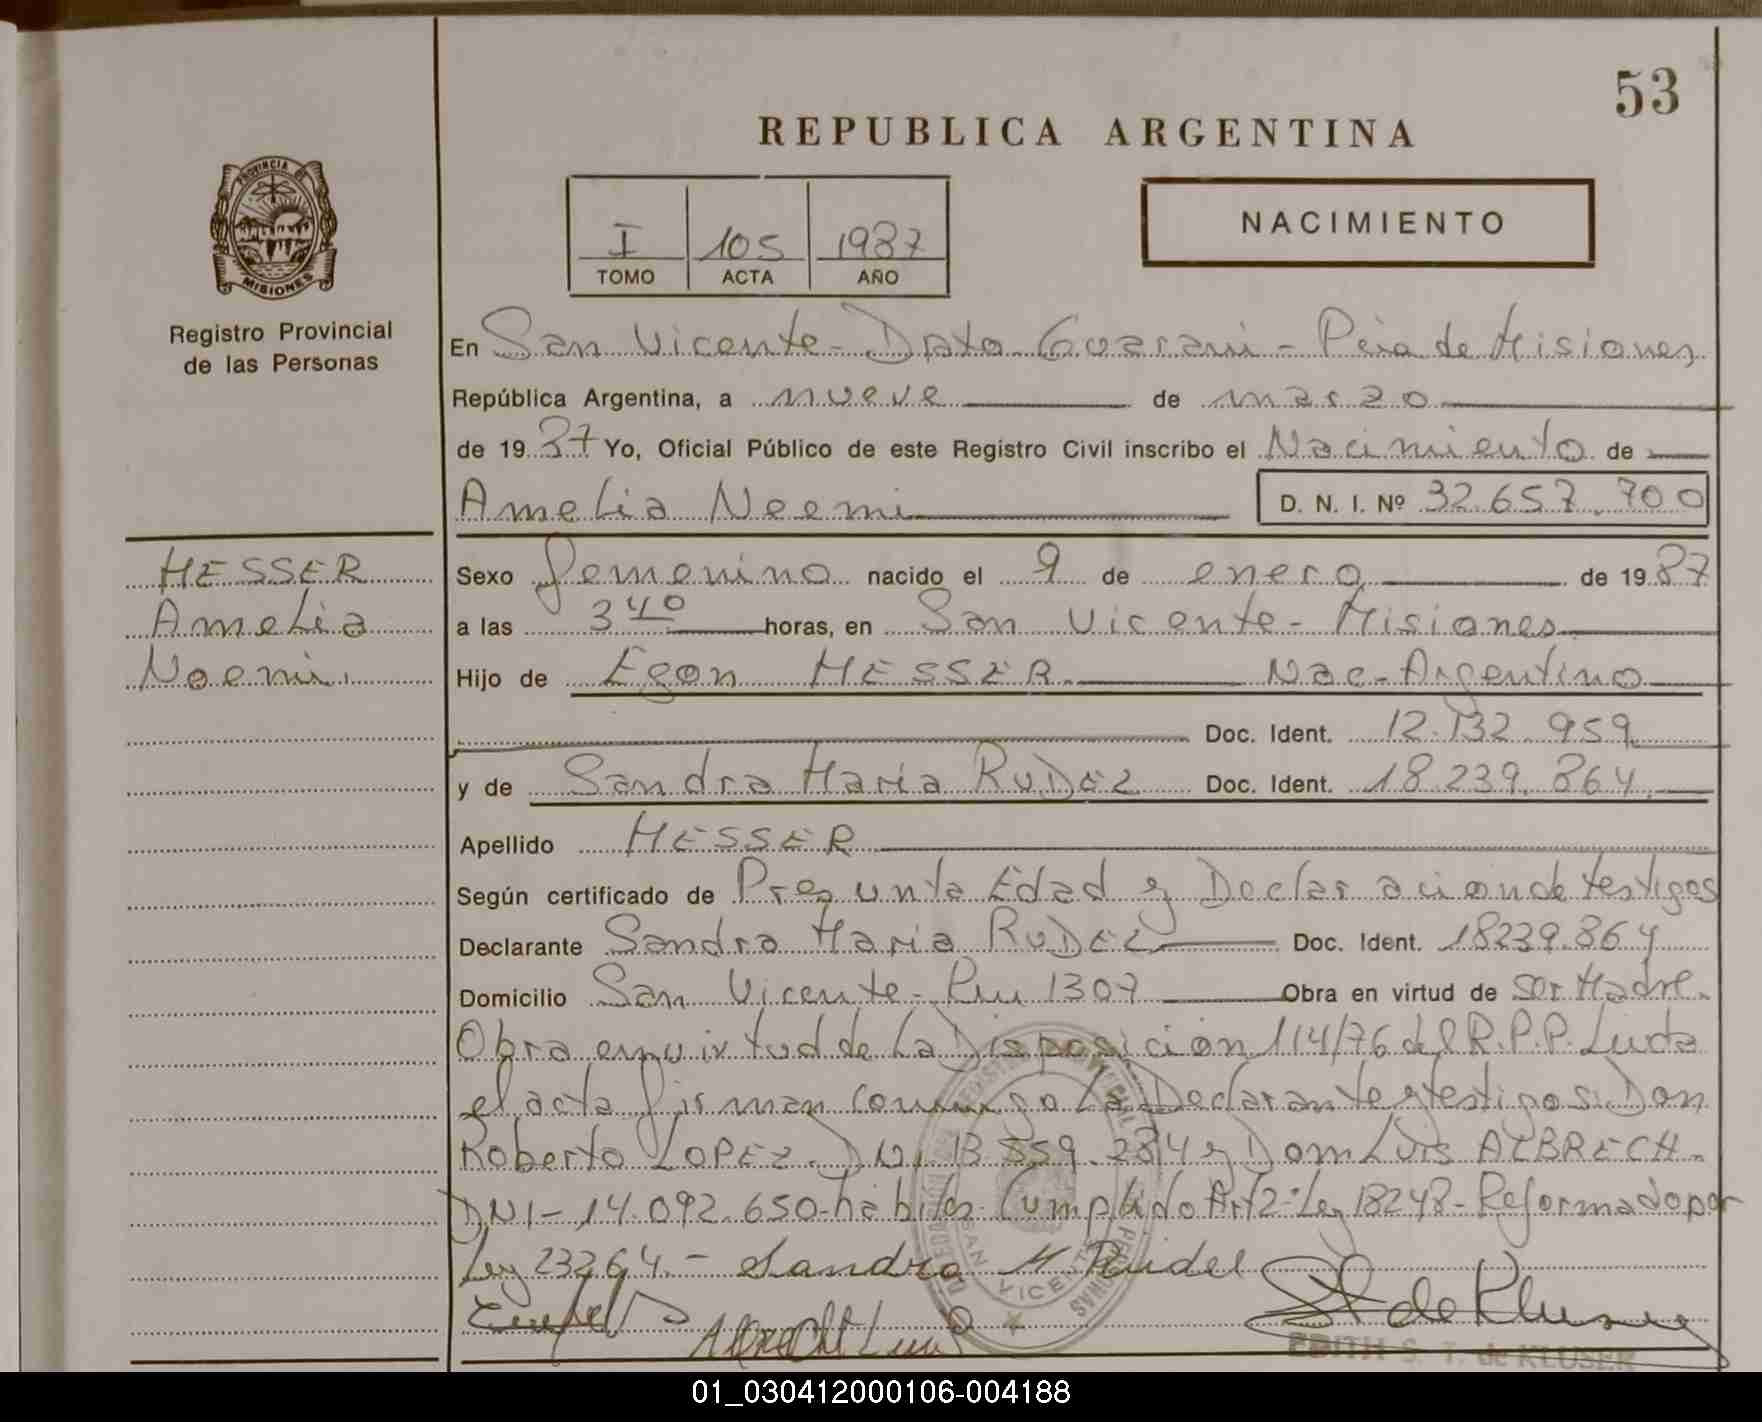 53
REPUBLICA ARGENTINA
PROVINCIA DE
MISIONES
Registro Provincial
de las Personas
I 105 1987
TOMO ACTA AÑO
NACIMIENTO
En San Vicente - Dpto Guarani - Pcia de Misiones
República Argentina, a nueve de marzo
de 19 87 Yo, Oficial Público de este Registro Civil inscribo el Nacimiento de
Amelia Noemi D. N. I. Nº 32.657.700
MESSER
Amelia
Noemi.
Sexo femenino nacido el 9 de enero de 1987
a las 3 40 horas, en San Vicente - Misiones
Hijo de Egon MESSER. Nac - Argentino
Doc. Ident. 12.132.959
y de Sandra Maria RuDEL Doc. Ident. 18.239.864.
Apellido MESSER
Según certificado de Presunta Edad y Declaracion de testigos
Declarante Sandra Maria RuDEL Doc. Ident. 18239.864
Domicilio San Vicente - 1307 Obra en virtud de ser Madre.
Obra en virtud de La Disposición 114/76 del R.P.P. Leida
el acta firman conmigo La Declarante y testigos: Don
Roberto LOPEZ. DNI. 13.559.284 y Dom Luis ALBRECH.
DNI - 14.092.650 - habiles. Cumplido Art 2º Ley 18248 - Reformado por
Ley 23264. - Sandra M Ruidel
Albrecht Luis
St de Kluser
EDITH S. T. de KLUSER
SAN VICENTE
01_030412000106-004188